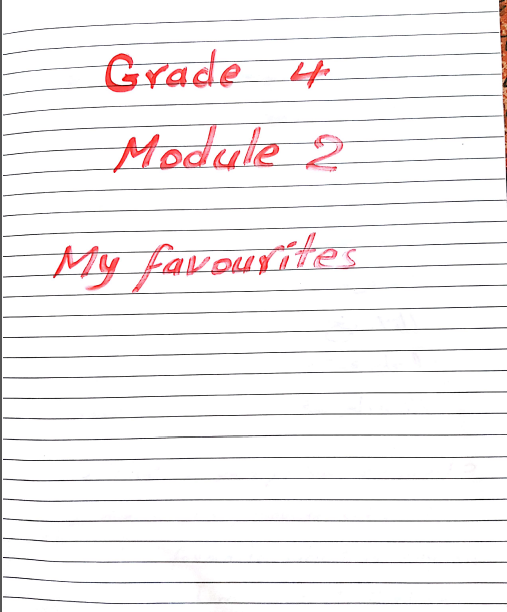 Grade 4
Module 2
My favourites